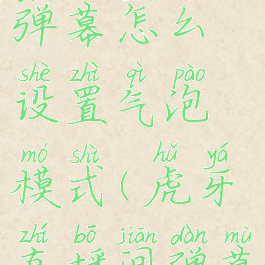 弹幕怎么
shè zhì qì pào
设置气泡
mó shì hǔ yá
模式(虎牙
zhí bō jiān dàn mù
直播间弹幕